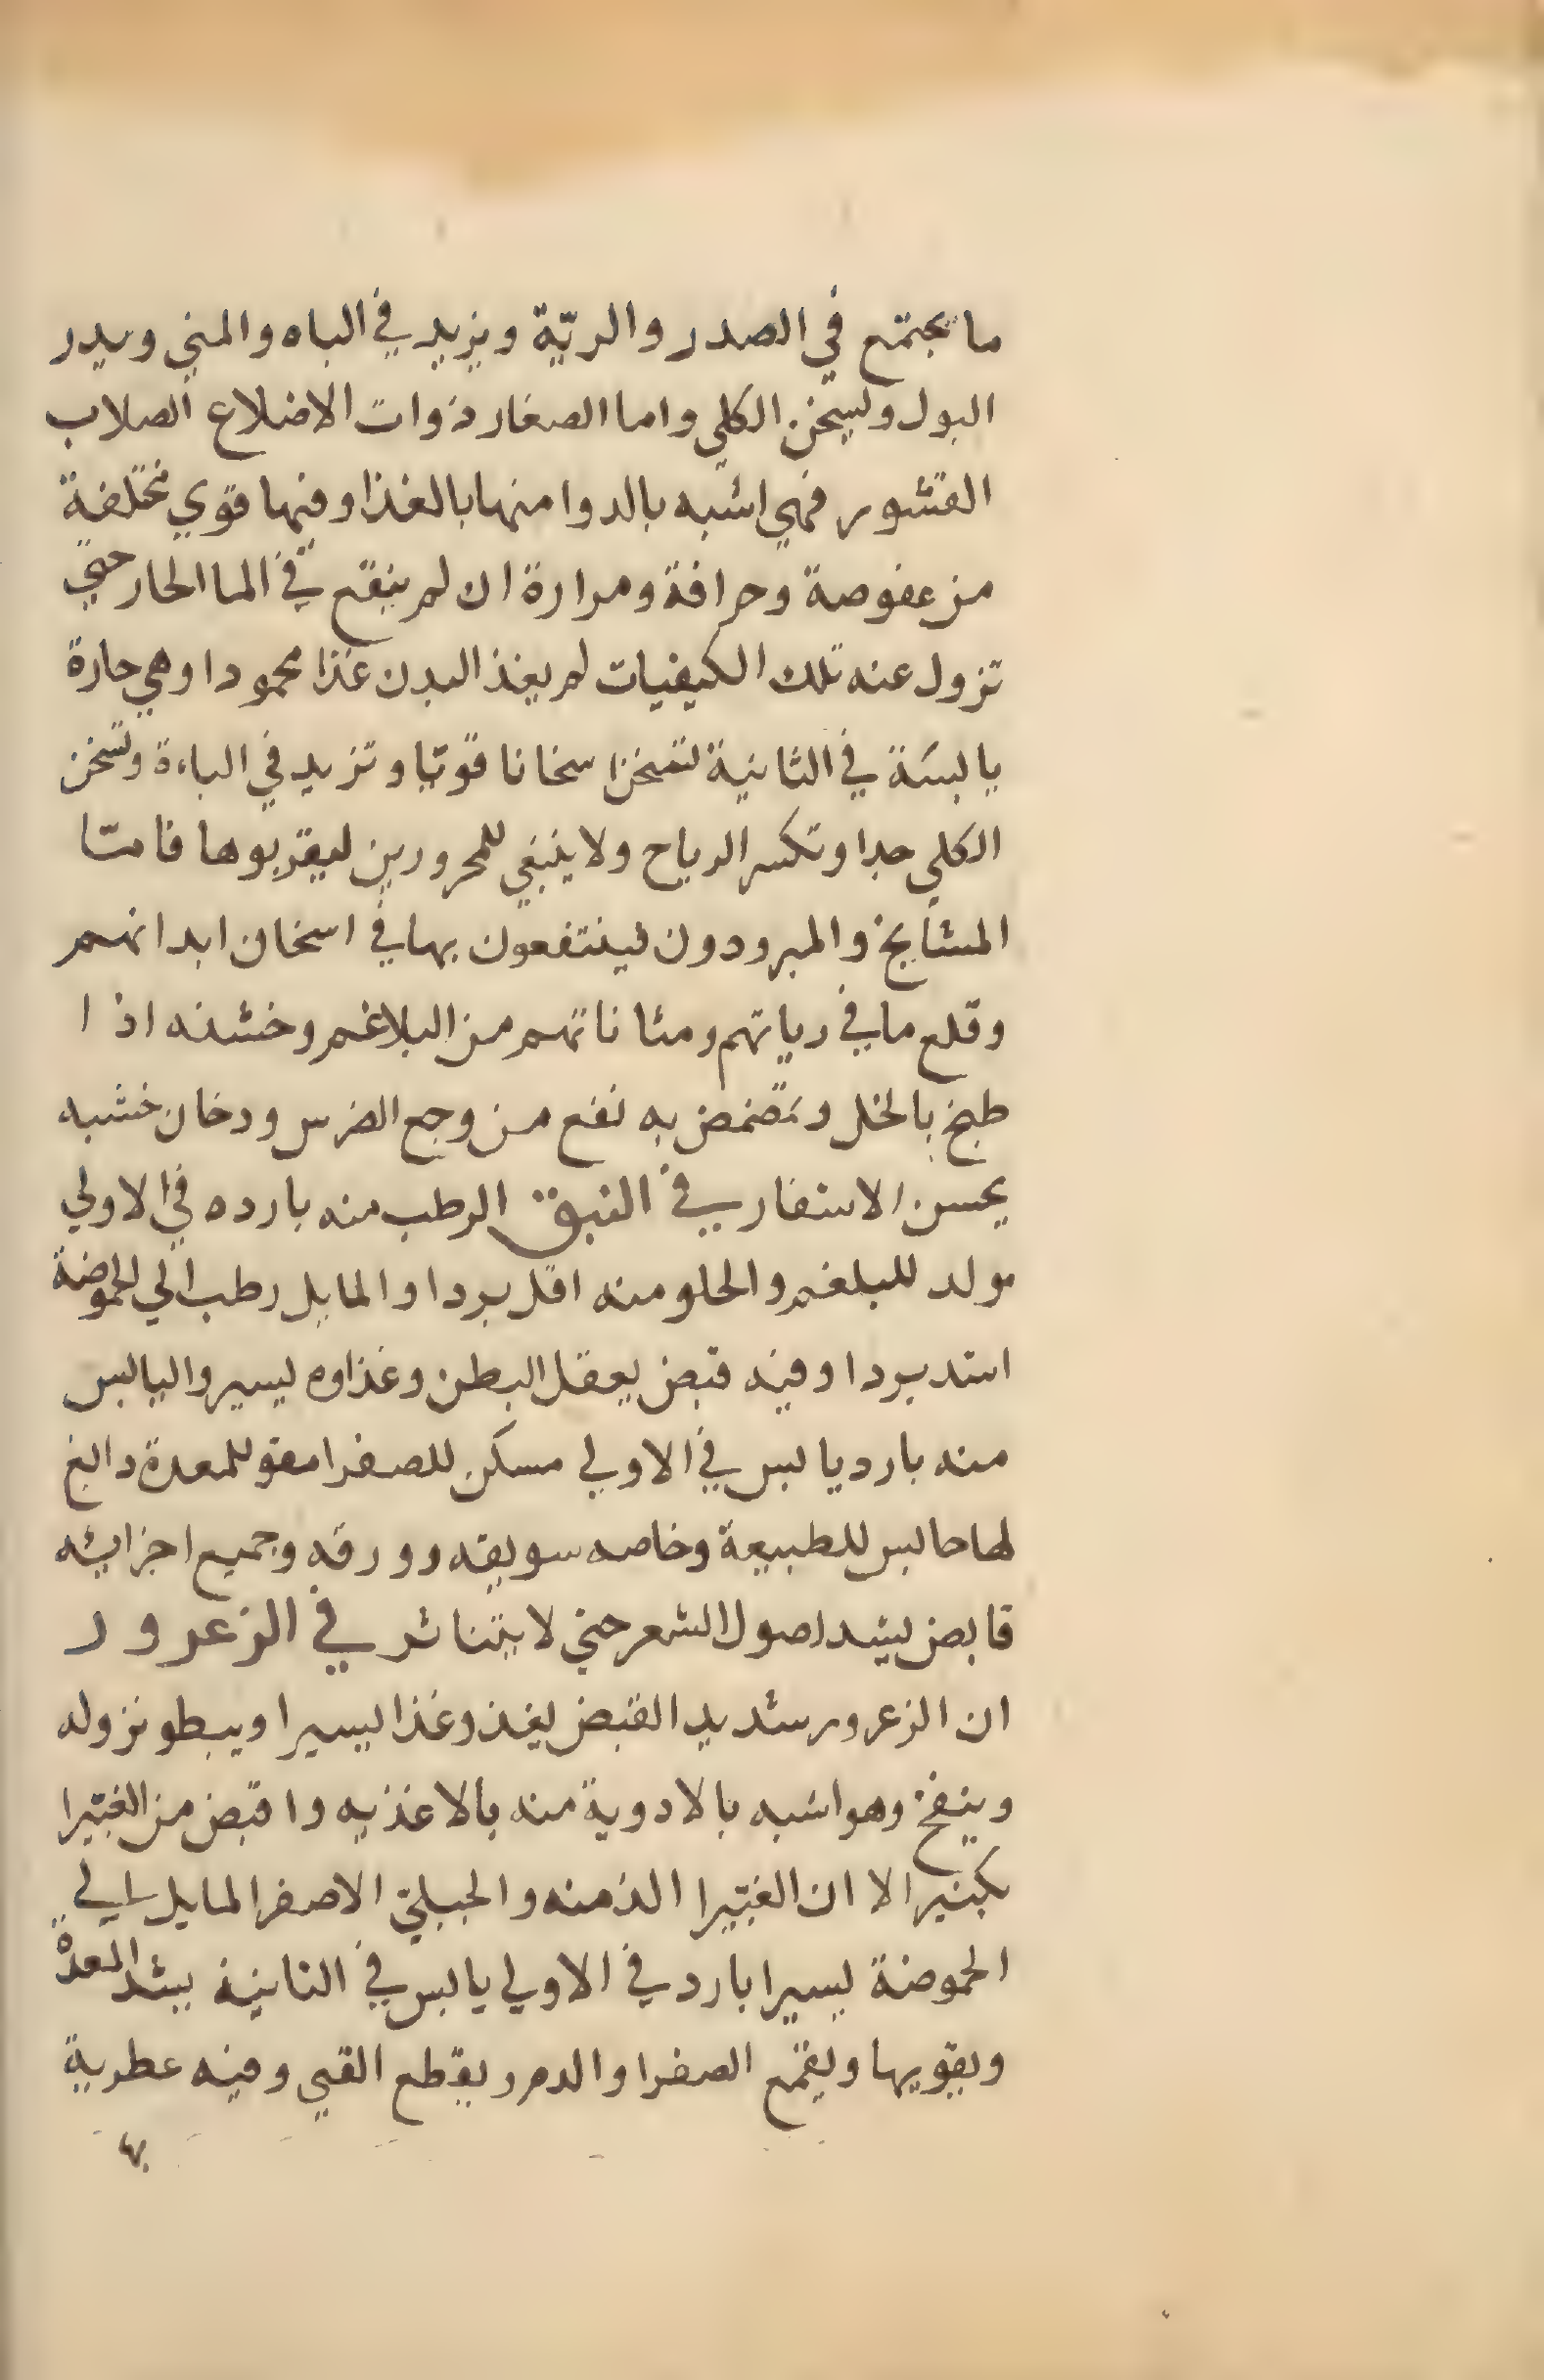 ما يجتمع في الصدر والريّة ويزيد في الباه والمني ويدر
البول ويسخن الكلي واما الصغار ذوات الاضلاع الصلاب
القشور فهي اشبه بالدوا منها بالغذا وفيها قوي مختلفة
من عفوصة وحرافة ومرارة ان لم ينقع في الما الحار حتي
تزول عنه تلك الكيفيات لم يغذ البدن غذا محمودا وهي حارة
يابسة في الثانية تسخن اسخانا قويّا وتزيد في الباءة وتسخن
الكلي جدا وتكسر الرياح ولا ينبغي للمحرورين ليقربوها فامّا
المشايخ والمبرودون لينتفعون بها في اسخان ابدانهم
وقلع ما في رياتهم ومثاناتهم من البلاغم وخشنه اذا
طبخ بالخل وتمضمض به نفع من وجع الضرس ودخان خشبه
يحسن الاسفار في النبق الرطب منه بارده في الاولي
مولد للبلغم والحلو منه اقل بردا والمايل رطب الي الحموضة
اشد بردا وفيه قبض يعقل البطن وغذاوه يسير واليابس
منه بارد يابس في الاولي مسكن للصفرا مقو للمعدة دابغ
لها حابس للطبيعة وخاصه سويقه وورقه وجميع اجزائه
قابض يشد اصول الشعر حتي لا يتناثر في الزعرور
ان الزعرور شديد القبض يغذو غذا يسيرا ويبطو نزوله
وينفخ وهو اشبه بالادوية منه بالاغذيه واقبض من الغبيرا
بكثير الا ان الغبيرا الذ منه والجبليّ الاصفر المايل الي
الحموضة يسيرا بارد في الاولي يابس في الثانية يشد المعدة
ويقويها ويقمع الصفرا والدم ويقطع القي وفيه عطرية